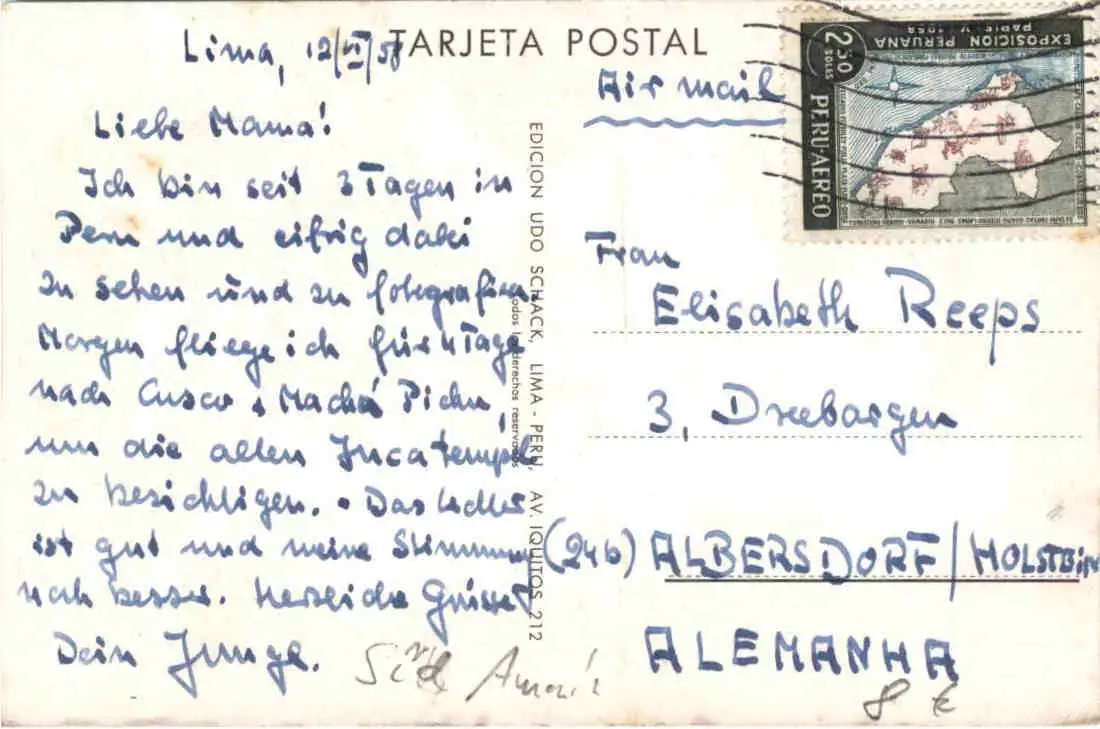 TARJETA POSTAL
Lima, 12/VI/58
Liebe Mama!
Ich bin seit 3 Tagen in
Peru und eifrig dabei
zu sehen und zu fotografieren.
Morgen fliege ich für 4 Tage
nach Cusco + Machá Pichu,
um die alten Incatempel
zu besichtigen. • Das Wetter
ist gut und meine Stimmung
noch besser. Herzliche Grüsse
Dein Junge.
EDICION UDO SCHACK, LIMA - PERU, AV. IQUITOS 212
Todos los derechos reservados
Air mail
EXPOSICION PERUANA
PARIS - V - 1958
2.50
SOLES
PERU-AEREO
Frau
Elisabeth Reeps
3, Dreebargen
(24b) ALBERSDORF/HOLSTEIN
ALEMANHA
Süd
8 €